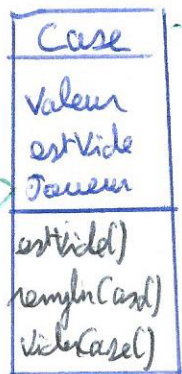 Case
Valeur
estVide
Joueur
estVide()
remplirCase()
viderCase()